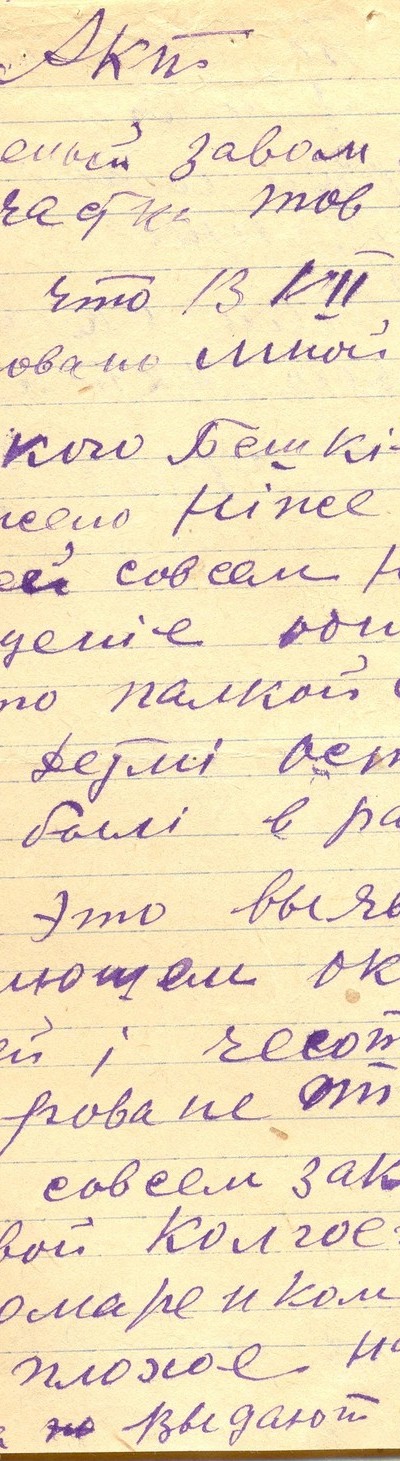 Акт
еный завом
частка тов
что 13 VII
овано мной
кого Бешкі-
жено ніже
ей совсем н
щеніе
то палкой с
детмі ост
былі в ра
Это выяв
ляющем ок
ей і чесот
рование от
совсем зак
вой колгос
омаренком
плохое на
выдают